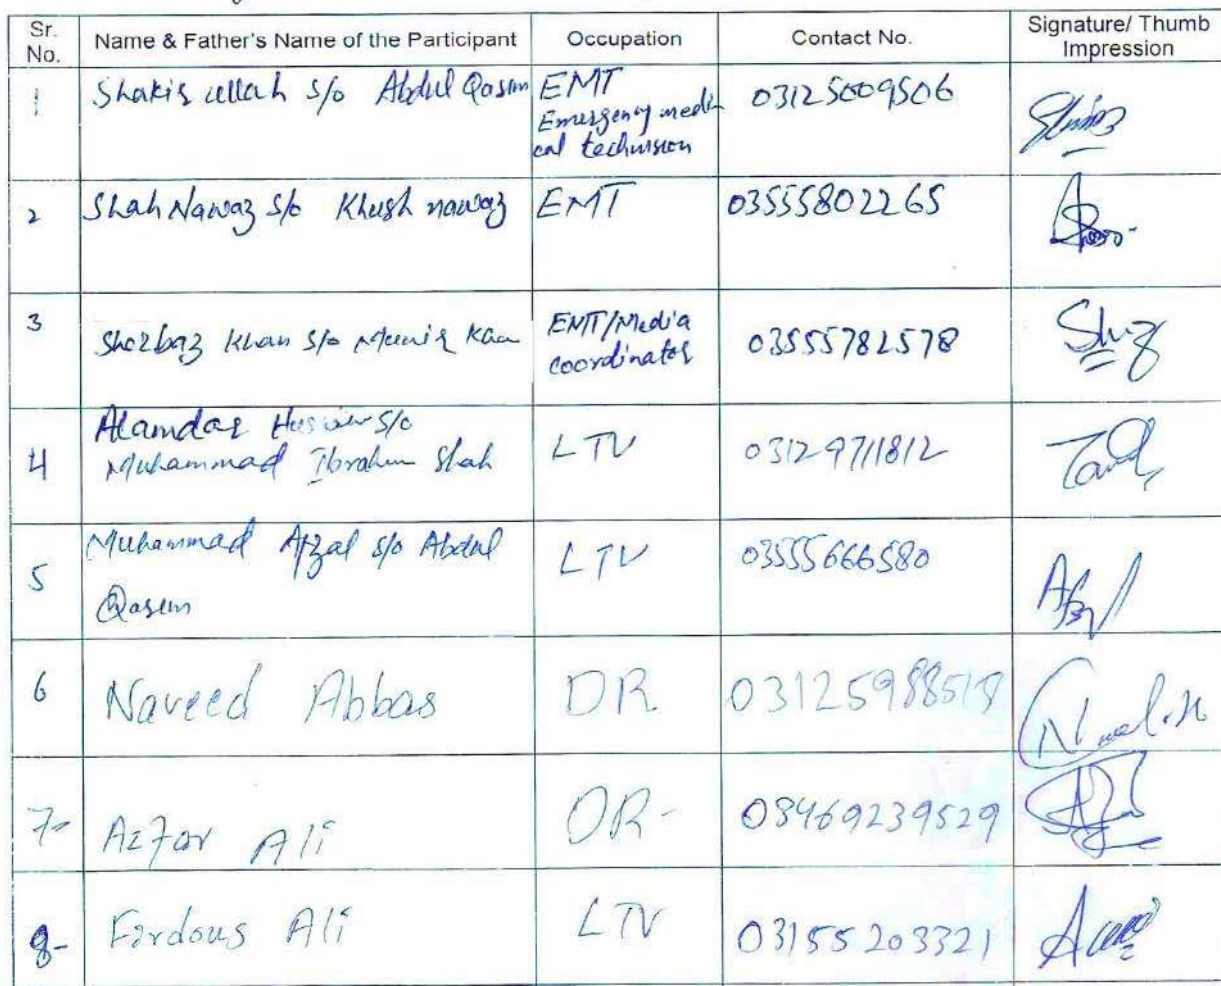 Sr. No. Name & Father's Name of the Participant Occupation Contact No. Signature/ Thumb Impression
1 Shakir ullah s/o Abdul Qasem EMT 03125009506
Emergency medi
cal technision
2 Shah Nawaz s/o Khush nawaz EMT 03555802265
3 EMT/Media
Sherbaz Khan s/o Munir Kan coordinator 03555782578
Alamdar Hussain s/o
4 Muhammad Ibrahim Shah LTV 03129711812
Muhammad Afzal s/o Abdul
5 LTV 03555666580
Qasem
6 Naveed Abbas DR 03125988518
7- Azfar Ali DR- 03469239529
8- Firdous Ali LTV 03155203321